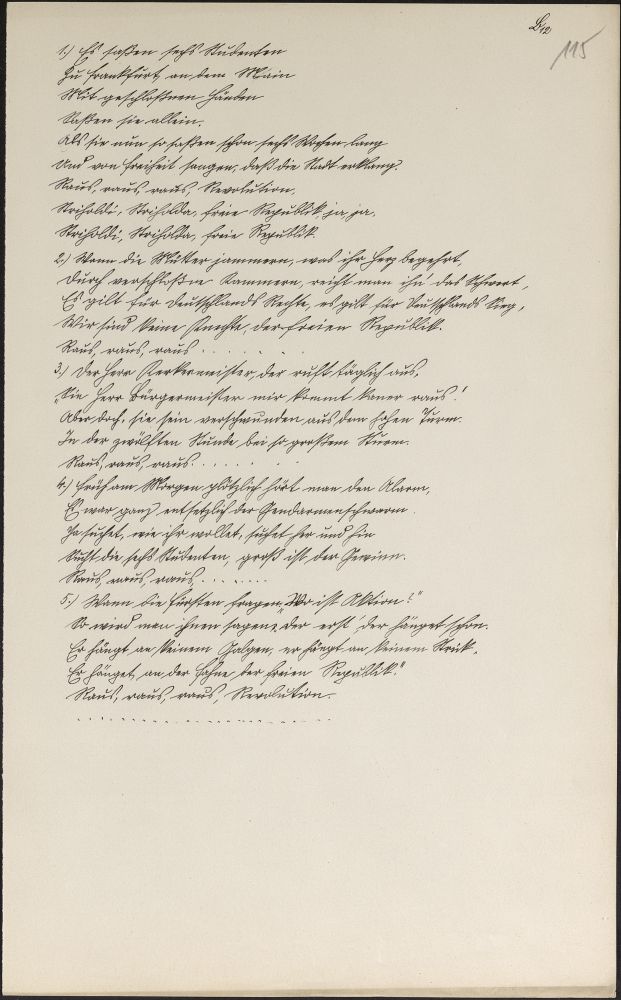 B 12
115
1.) Es saßen sechs Studenten
Zu Frankfurt, an dem Main
Mit geschloßnen Händen
Saßen sie allein.
Als sie nun so saßen schon sechs Wochen lang
Und von Freiheit sangen, daß die Stadt erklang.
Raus, raus, raus, Revolution,
Striholdi, Striholda, freie Republik, ja, ja,
Striholdi, Striholda, freie Republik.
2.) Wenn die Mütter jammern, was ihr Herz begehrt,
Durch verschloßne Kammern, reicht man ihn das Schwert,
Es gilt für Deutschlands Rechte, es gilt für Deutschlands Sieg,
Wir sind keine Knechte, der freien Republik.
Raus, raus, raus . . . . . .
3.) Der Herr Kerkermeister, der ruft täglich aus,
"Sie Herr Bürgermeister mir kommt kaner raus!
Aber doch, sie sein verschwunden aus dem hohen Turm.
In der zwölften Stunde bei so großem Sturm.
Raus, raus, raus. . . . . . .
4.) Früh am Morgen plötzlich hört man den Alarm,
Es war ganz entsetzlich der Gendarmenschwarm.
Ja suchet, wie ihr wollet, suchet her und hin
Sucht die sechs Studenten, groß ist der Gewinn.
Raus, raus, raus, . . . . . . .
5.) Wann die Fürsten fragen, "Wo ist Aktion?"
So wird man ihnen sagen, der erst', der hänget schon.
Er hängt an keinem Galgen, er hängt an keinem Strick,
Er hänget, an der Fahne der freien Republik."
Raus, raus, raus, Revolution.
. . . . . . . . . . . . . . . . . . . . . . .